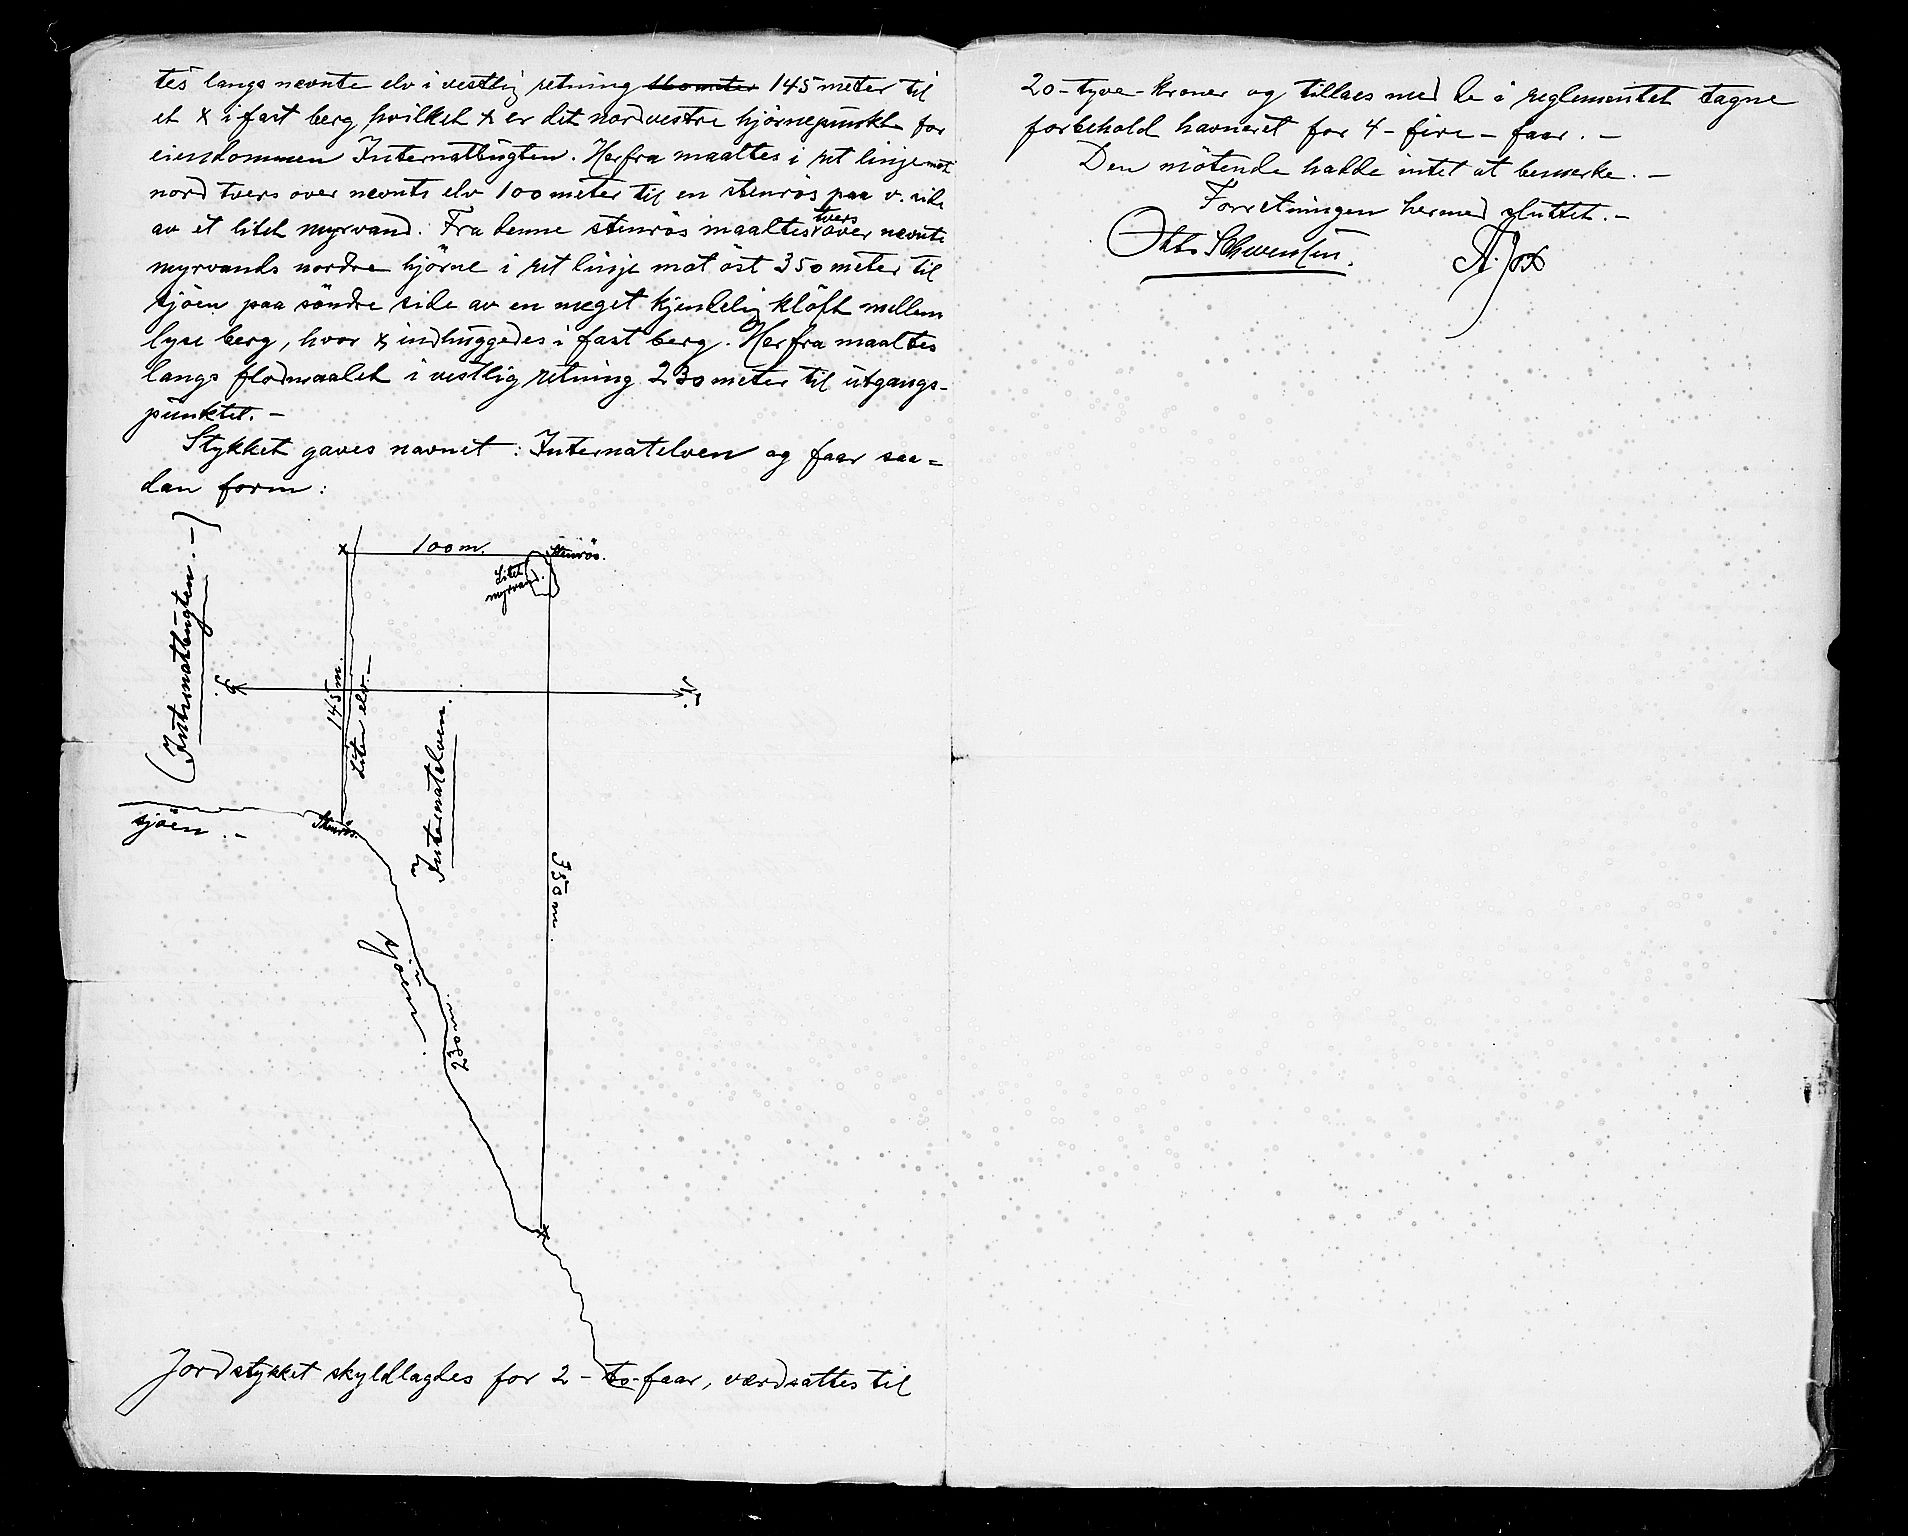 tes langs nevnte elv i vestlig retning 145 meter til
et x i fast berg hvilket x er det nordvestre hjörnepunkt for
eiendommen Internatbugten. Herfra maaltes i ret linje mot
nord tvers over nevnte elv 100 meter til en stenrös paa v. side
av et litet myrvand. Fra denne stenrös maaltes tvers over nevnte
myrvands nordre hjörne i ret linje mot öst 350 meter til
sjöen paa söndre side av en meget kjendelig klöft mellem
lyse berg, hvor x indhuggedes i fast berg. Herfra maaltes
langs flodmaalet i vestlig retning 230 meter til utgangs-
punktet. -
Stykket gaves navnet: Internatelven og faar saa=
dan form:
x 100 m. Stenrös.
Litet
myrvand.
(Internatbugten. -)
S.
N.
145 m.
Liten elv. -
Internatelven.
sjöen. -
Stenrös.
350 m.
sjöen.
230 m.
x
Jordstykket skyldlagdes for 2 - to - faar, værdsattes til
20 - tyve - kroner og tillaes med de i reglementet tagne
forbehold havneret for 4 - fire - faar. -
Den mötende hadde intet at bemerke. -
Forretningen hermed sluttet. -
Otto Schwensen.